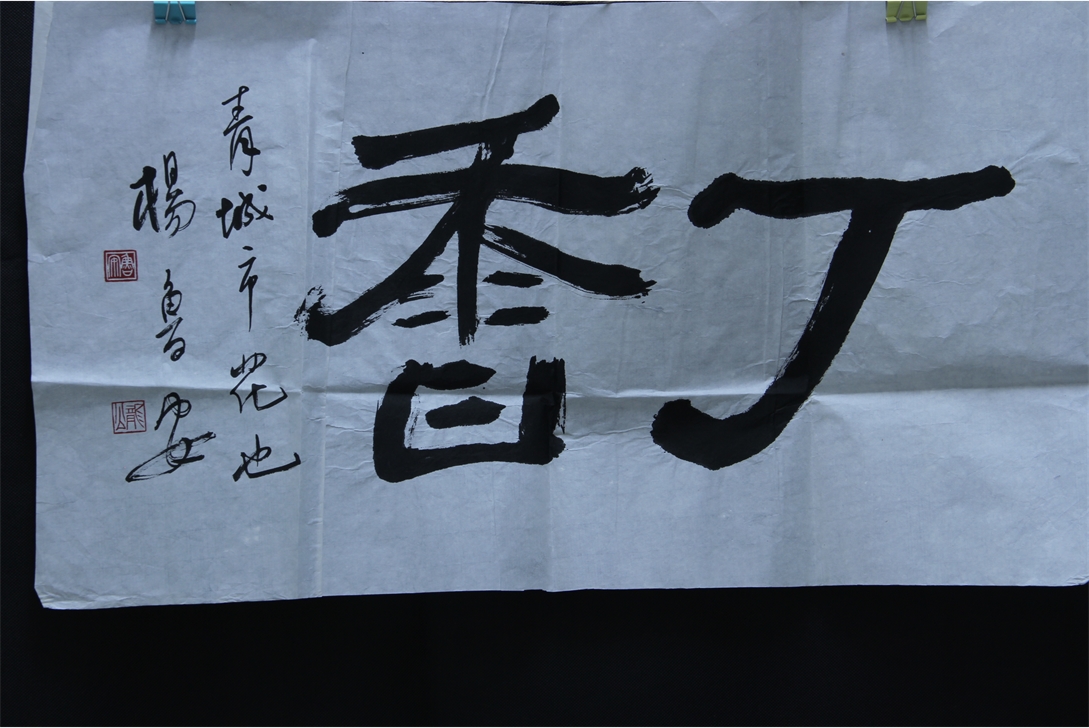 丁香
青城市花也
楊魯安